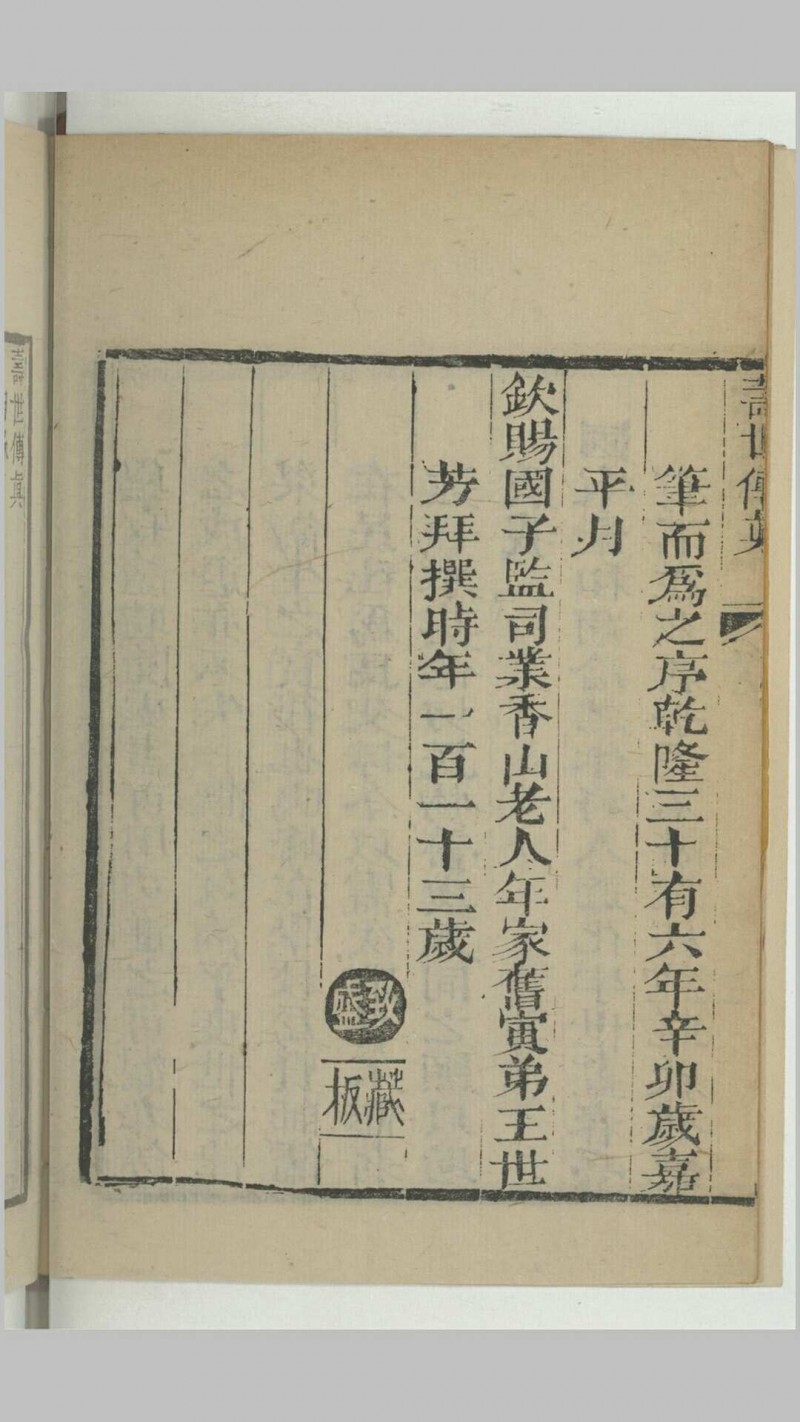 壽世傳真
筆而爲之序乾隆三十有六年辛卯歲嘉
平月
欽賜國子監司業香山老人年家舊寅弟王世
芳拜撰時年一百一十三歲
致盛
藏板
壽世傳真